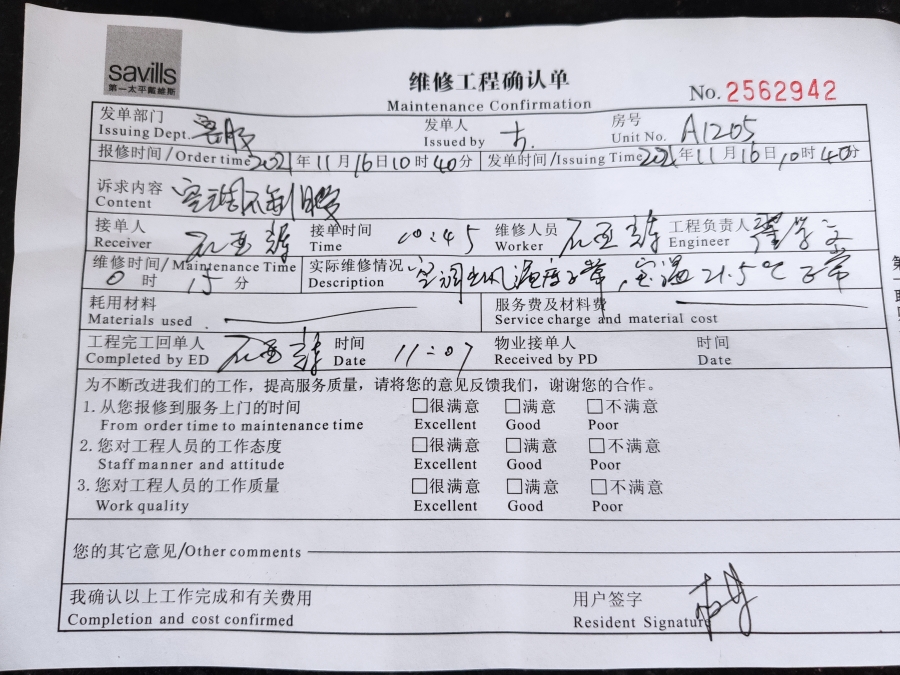 savills
第一太平戴維斯
维修工程确认单
Maintenance Confirmation
No. 2562942
发单部门 客服 发单人 房号
Issuing Dept. Issued by Unit No. A1205
报修时间/Order time 2021年11月16日10时40分 发单时间/Issuing Time 2021年11月16日10时40分
诉求内容 空调不制
Content
接单人 接单时间 维修人员 工程负责人
Receiver Time 10:45 Worker Engineer
维修时间/Maintenance Time 实际维修情况 空调出风温度正常,室温21.5℃正常
0时15分 Description
耗用材料 服务费及材料费
Materials used Service charge and material cost
工程完工回单人 时间 物业接单人 时间
Completed by ED Date 11:07 Received by PD Date
为不断改进我们的工作，提高服务质量，请将您的意见反馈我们，谢谢您的合作。
1.从您报修到服务上门的时间 □很满意 □满意 □不满意
From order time to maintenance time Excellent Good Poor
2.您对工程人员的工作态度 □很满意 □满意 □不满意
Staff manner and attitude Excellent Good Poor
3.您对工程人员的工作质量 □很满意 □满意 □不满意
Work quality Excellent Good Poor
您的其它意见/Other comments
我确认以上工作完成和有关费用 用户签字
Completion and cost confirmed Resident Signature
第一联